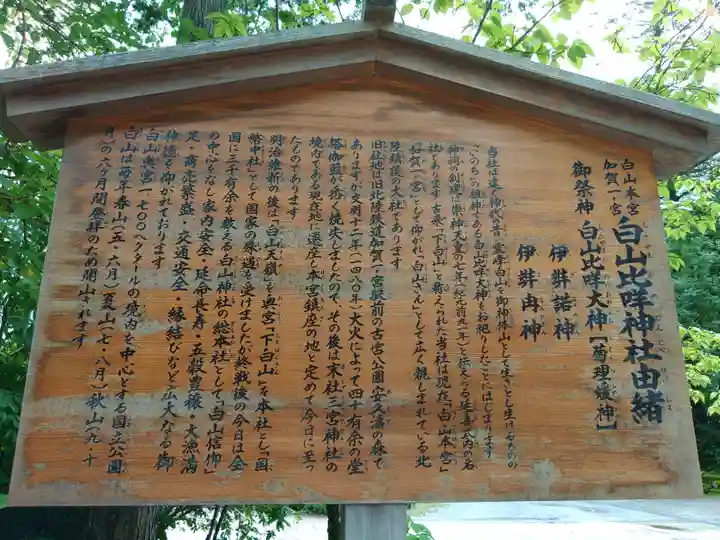 白山本宮
加賀一ノ宮
白山比咩神社由緒
御祭神 白山比咩大神〔菊理媛神〕
伊弉諾神
伊弉冉神
当社は遠く神代の昔 霊峰白山を御神体山とし生きとし生けるものの
"いのち"の祖神である白山比咩大神をお祀りしたことにはじまります
神祠の創建は崇神天皇の七年(紀元前九一年)と伝えられる延喜式内の名
社であります 古来「下白山」と称えられた当社は現在「白山本宮」
「加賀一ノ宮」として仰がれ「白山さん」として広く親しまれている北
陸鎮護の大社であります
旧社地は旧北陸鉄道加賀一ノ宮駅前の古宮公園安久濤の森で
ありますが文明十二年(一四八〇年)大火によって四十有余の堂
塔伽藍が悉く焼失しましたので、その後は末社三宮神社の
境内である現在地に遷座し本宮鎮座の地と定めて今日に至っ
たものであります
明治維新の後は「白山天嶺」を奥宮「下白山」を本社とし「国
幣中社」として国家の殊遇を受けましたが終戦後の今日は全
国に三千有余を数える白山神社の総本社として「白山信仰」
の中心をなし家内安全・延命長寿・五穀豊穣・大漁満
足・商売繁盛・交通安全・縁結びなど広大なる御
神徳を仰がれております
白山奥宮一七〇〇ヘクタールの境内を中心とする国立公園
白山は毎年春山(五・六月)夏山(七・八月)秋山(九・十
月)の六ヶ月間登拝のため開山されます